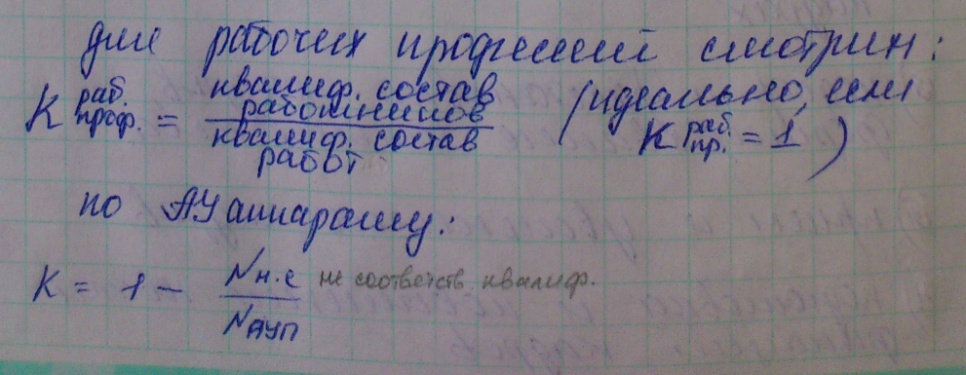 для рабочих профессий смотрим:
K раб. проф. = квалиф. состав работников / квалиф. состав работ (идеально, если K раб. пр. = 1)
по АУ аппарату:
K = 1 - Nн.с / NАУП не соответств. квалиф.